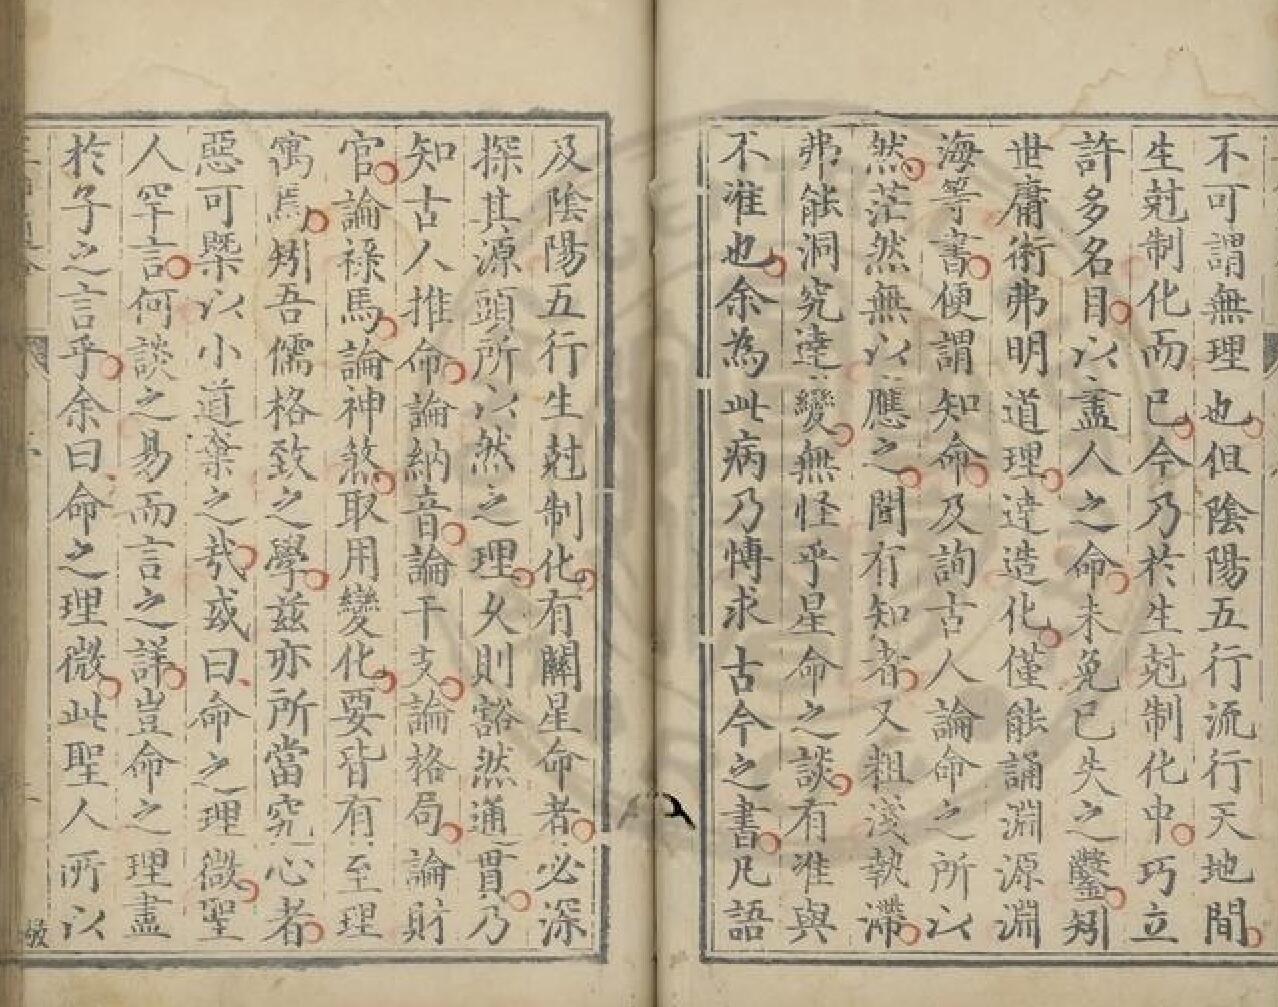 不可謂無理也但陰陽五行流行天地間
生尅制化而已今乃於生尅制化中巧立
許多名目以盡人之命未免已失之鑿矧
世庸術弗明道理達造化僅能誦淵源淵
海等書便謂知命及詢古人論命之所以
然茫然無以應之間有知者又粗淺執滯
弗能洞究達變無怪乎星命之談有准與
不准也余為此病乃博求古今之書凡語
及陰陽五行生尅制化有關星命者必深
探其源頭所以然之理久則豁然通貫乃
知古人推命論納音論干支論格局論財
官論祿馬論神煞取用變化要皆有至理
寓焉矧吾儒格致之學茲亦所當究心者
惡可槩以小道棄之哉或曰命之理微聖
人罕言何談之易而言之詳豈命之理盡
於子之言乎余曰命之理微此聖人所以